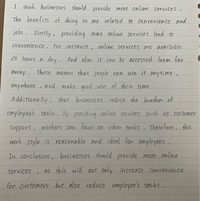 I think businesses should provide more online services.
The benefits of doing so are related to convenience and
jobs. Firstly, providing more online services lead to
convenience. For instance, online services are available
24 hours a day. And also it can be accessed from far
away. These means that people can use it anytime,
anywhere, and make good use of their time.
Additionally, that businesses reduce the burden of
employee's tasks. By providing online services such as customer
support, workers can focus on other tasks. Therefore, this
work style is reasonable and ideal for employees.
In conclusion, businesses should provide more online
services, as this will not only increase convenience
for customers but also reduce employee's tasks.